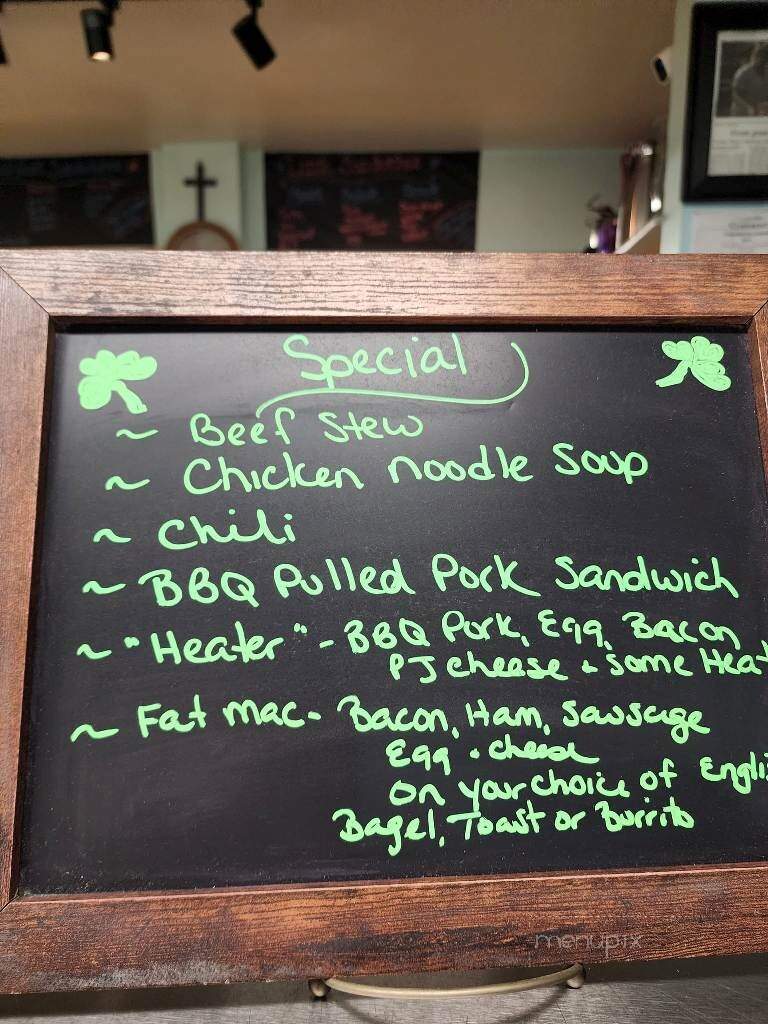 Special
~ Beef Stew
~ Chicken noodle Soup
~ Chili
~ BBQ Pulled Pork Sandwich
~ "Heater" - BBQ Pork, Egg, Bacon
PJ cheese & Some Heat
~ Fat mac - Bacon, Ham, Sausage
Egg & cheese
on your choice of Engli
Bagel, Toast or Burrito
menupix